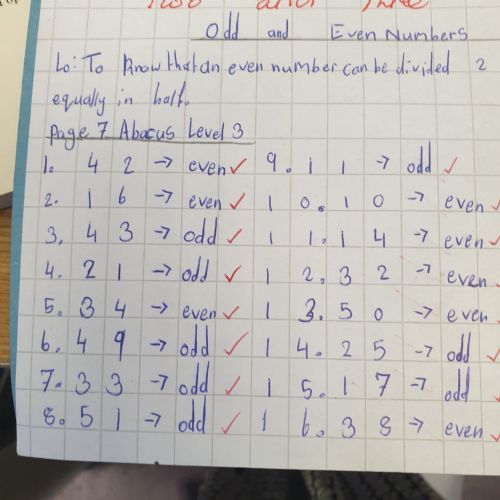 Odd and Even Numbers
Lo: To know that an even number can be divided 2
equally in half.
Page 7 Abacus Level 3
1. 42 → even ✓ 9. 11 → odd ✓
2. 16 → even ✓ 10. 10 → even ✓
3. 43 → odd ✓ 11. 14 → even ✓
4. 21 → odd ✓ 12. 32 → even
5. 34 → even ✓ 13. 50 → even ✓
6. 49 → odd ✓ 14. 25 → odd ✓
7. 33 → odd ✓ 15. 17 → odd ✓
8. 51 → odd ✓ 16. 38 → even ✓